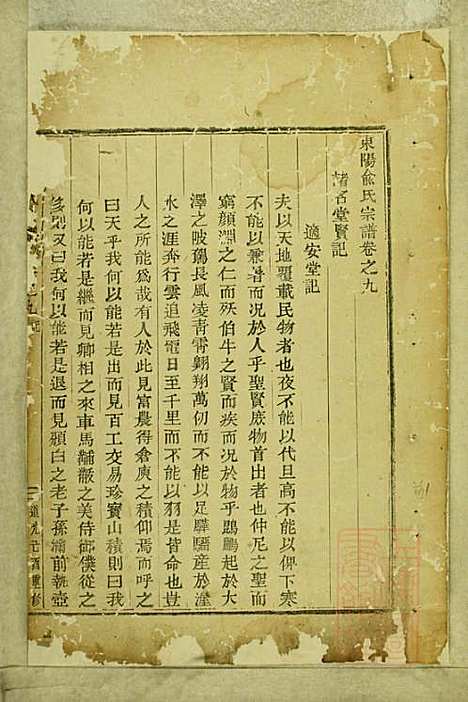 東陽俞氏宗譜卷之九
諸名堂賢記
適安堂記
夫以天地覆載民物者也夜不能以代旦高不能以俾下寒
不能以兼暑而况於人乎聖賢庶物首出者也仲尼之聖而
窮顔淵之仁而殀伯牛之賢而疾而况於物乎鵾鵬起於大
澤之陂駕長風凌青霄翺翔萬仞而不能以足驊騮產於渥
水之涯奔行雲追飛電日至千里而不能以羽是皆命也豈
人之所能爲哉有人於此見富農得倉庾之積仰焉而呼之
曰天乎我何以能若是出而見百工交易珍寳山積則曰我
何以能若是繼而見卿相之來車馬黼黻之美侍御僕從之
多則又曰我何以能若是退而見頒白之老子孫滿前執壺
道光乙酉重修